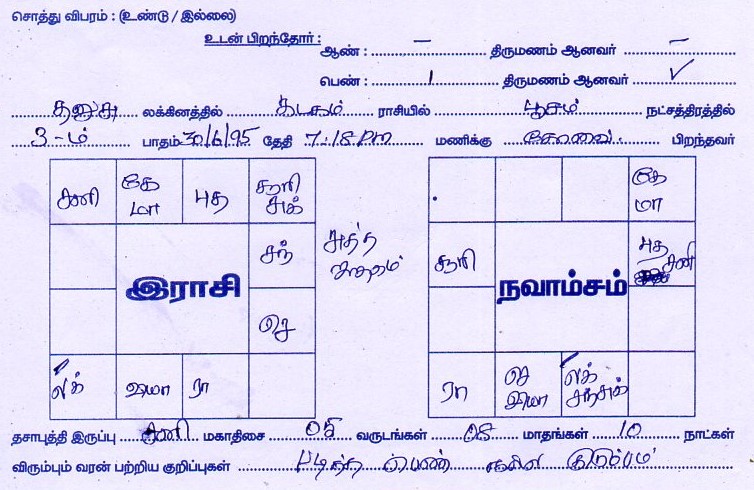 சொத்து விபரம் : (உண்டு / இல்லை)
உடன் பிறந்தோர் :
ஆண் : – திருமணம் ஆனவர் –
பெண் : 1 திருமணம் ஆனவர் ✓
தனுசு லக்கினத்தில் கடகம் ராசியில் பூசம் நட்சத்திரத்தில்
3-ம் பாதம் 30/6/95 தேதி 7:18 Pm மணிக்கு கோவை பிறந்தவர்
சனி கே மா புத சூரி சுக்
சந்
இராசி
செ
லக் வியா ரா
சுத்த ஜாதகம்
கே மா
சூரி புத சனி
நவாம்சம்
ரா செ வியா லக் சந் சுக்
தசாபுத்தி இருப்பு சனி மகாதிசை 05 வருடங்கள் 08 மாதங்கள் 10 நாட்கள்
விரும்பும் வரன் பற்றிய குறிப்புகள் படித்த பெண் நல்ல குடும்பம்